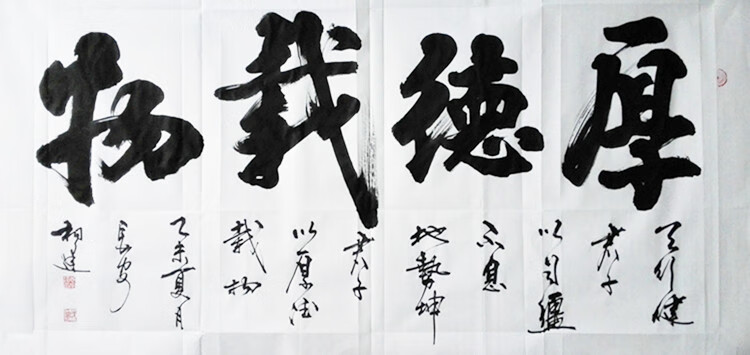 厚德載物
天行健
君子
以自強
不息
地勢坤
君子
以厚德
載物
乙未夏月
長安